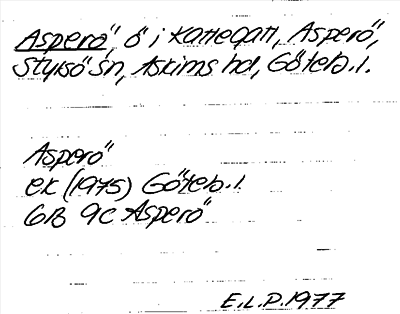 Asperö, ö i Kattegatt, Asperö,
Styrsö sn, Askims hd, Göteb.l.
Asperö
ek (1975) Göteb.l.
6B 9c Asperö
E.L.P.1977